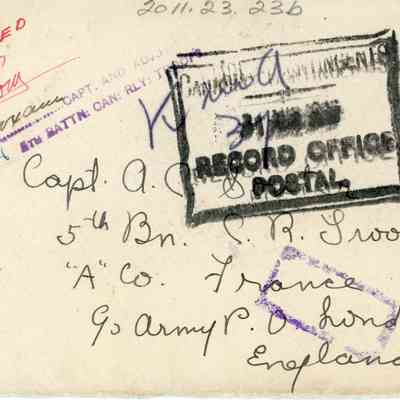 2011.23.23b
ED
CAPT. AND ADJ
5TH BATTN: CAN: RLY: TR
CONTINGENTS
RECORD OFFICE
POSTAL
Capt. A. C.
5th Bn. C. R. Troo
"A" Co. France
℅ Army P. O. Lond
England